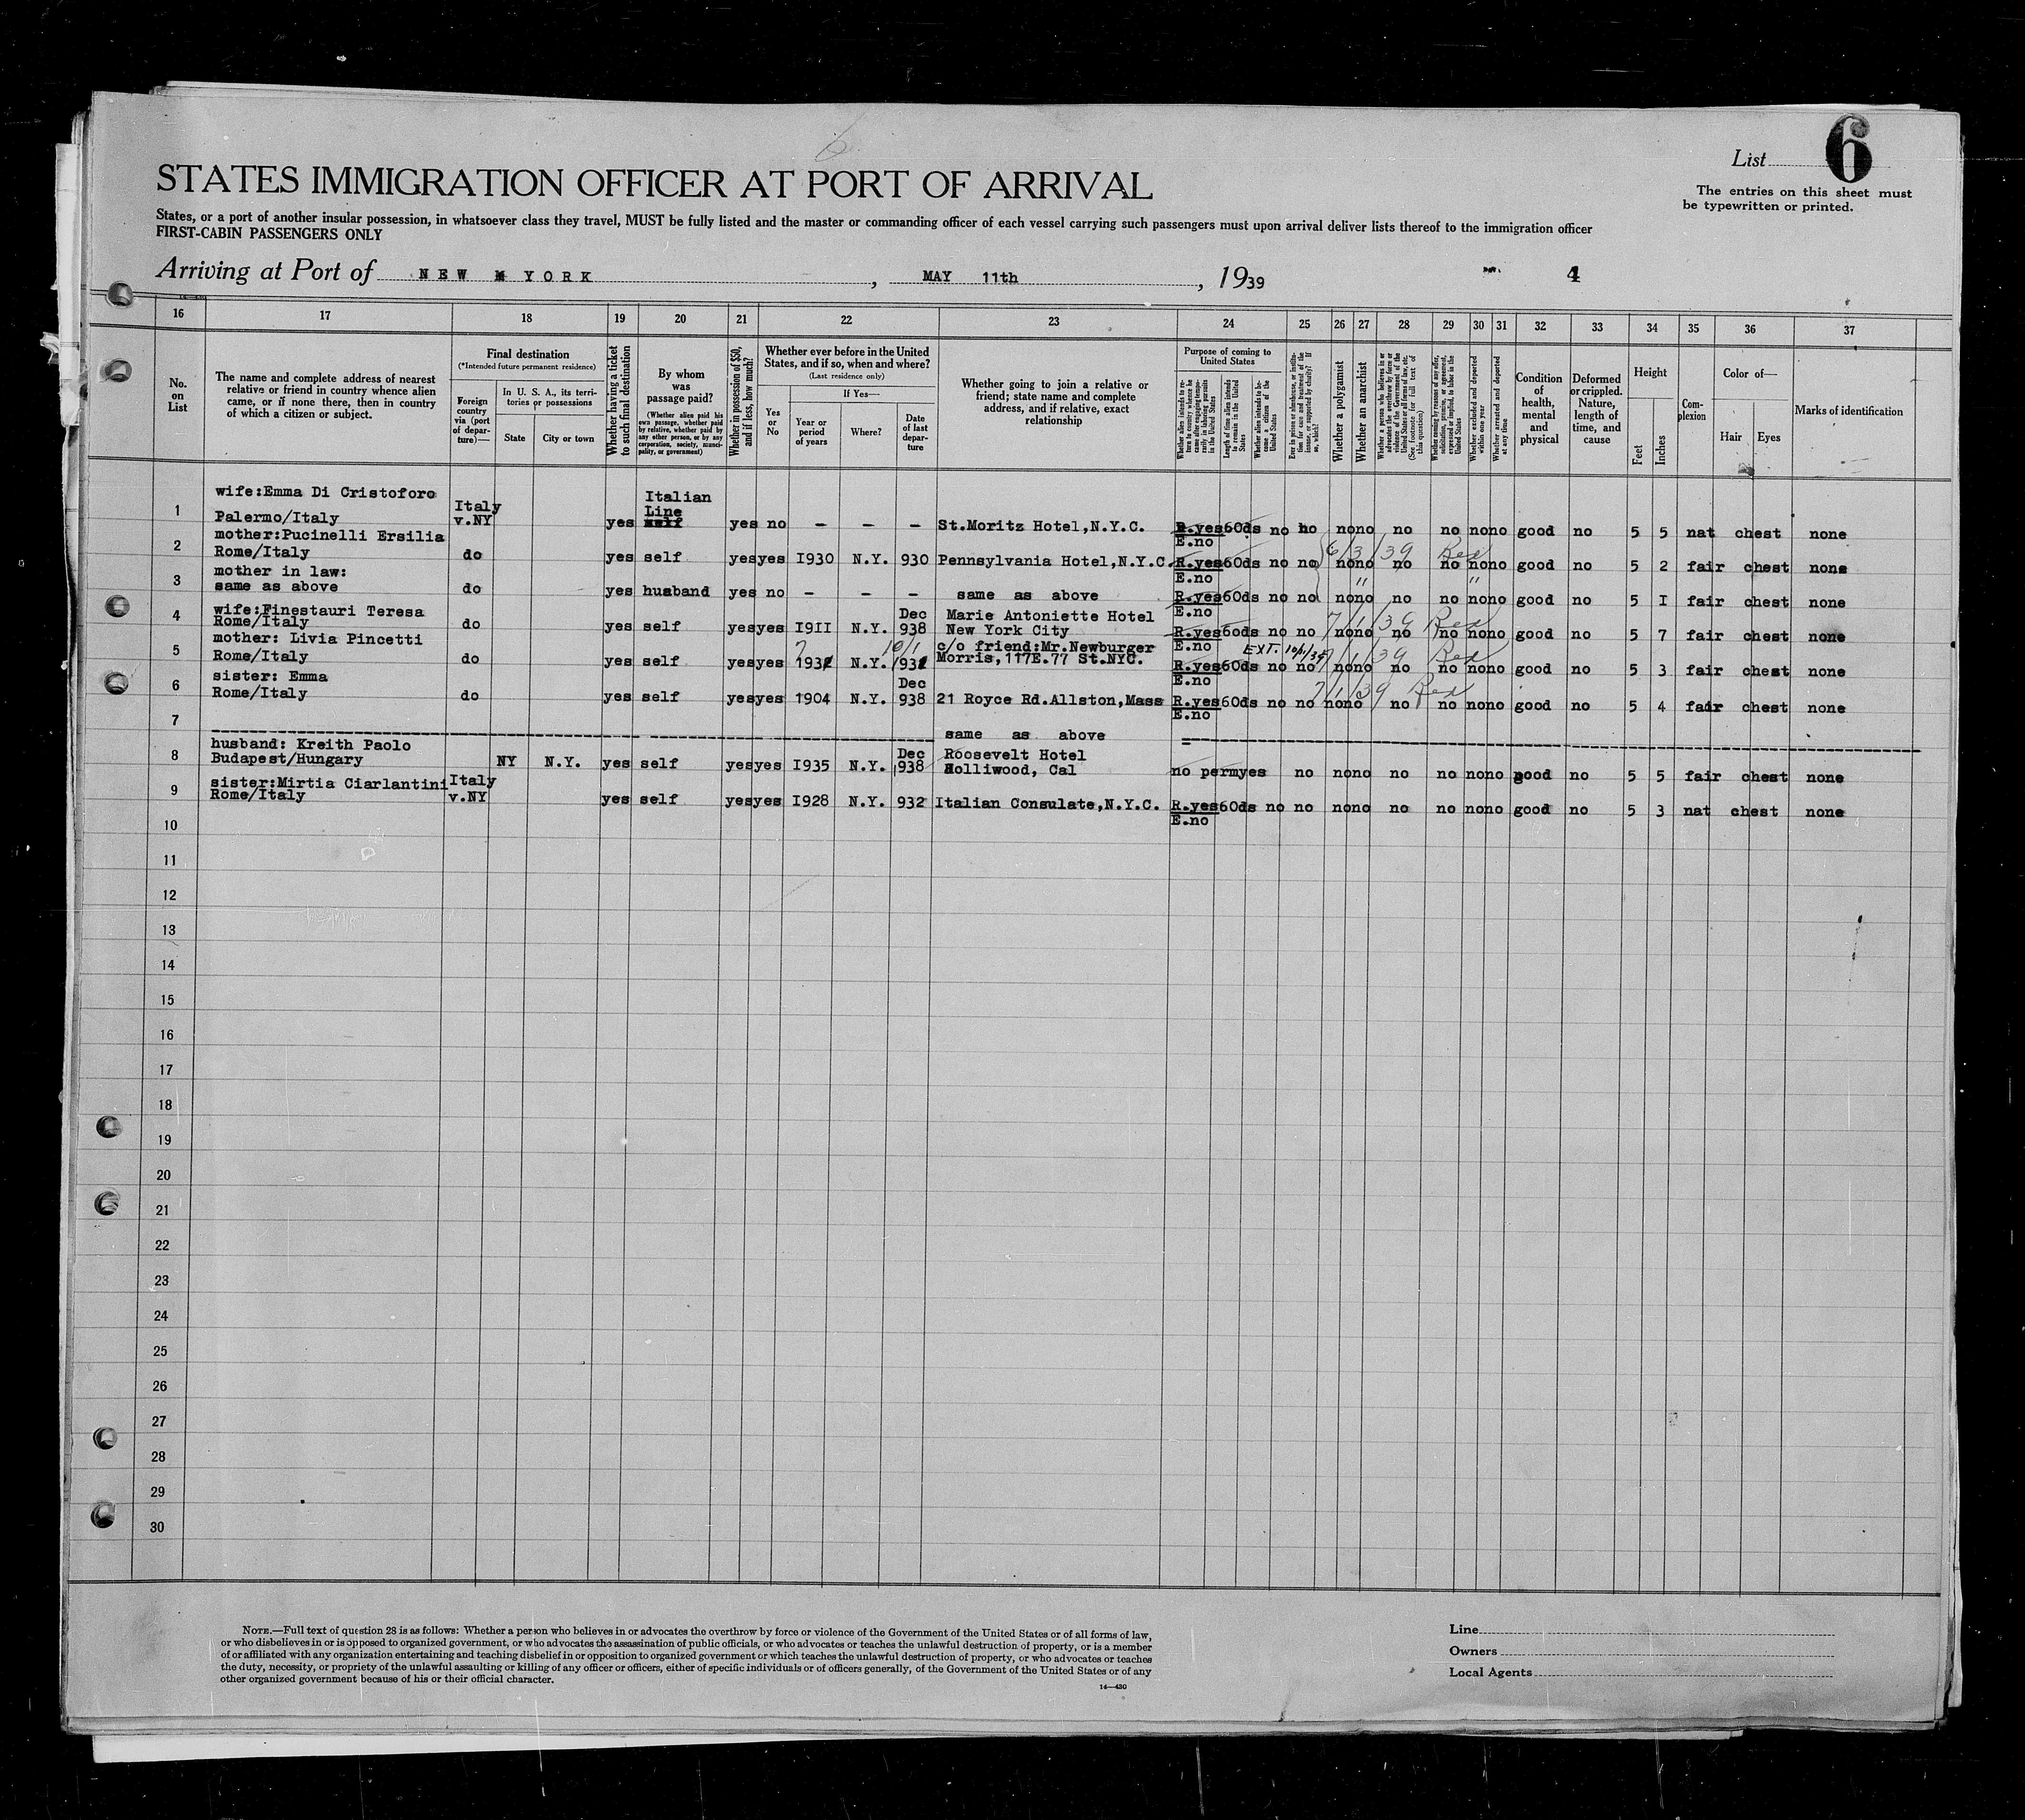 6
List 6
STATES IMMIGRATION OFFICER AT PORT OF ARRIVAL
The entries on this sheet must
be typewritten or printed.
States, or a port of another insular possession, in whatsoever class they travel, MUST be fully listed and the master or commanding officer of each vessel carrying such passengers must upon arrival deliver lists thereof to the immigration officer
FIRST-CABIN PASSENGERS ONLY
Arriving at Port of NEW YORK, MAY 11th, 1939 4
16 17 18 19 20 21 22 23 24 25 26 27 28 29 30 31 32 33 34 35 36 37
No. on List
The name and complete address of nearest relative or friend in country whence alien came, or if none there, then in country of which a citizen or subject.
Final destination
(*Intended future permanent residence)
Foreign country via (port of departure)—
In U. S. A., its territories or possessions
State City or town
Whether having a ticket to such final destination
By whom was passage paid?
(Whether alien paid his own passage, whether paid by relative, whether paid by any other person, or by any corporation, society, municipality, or government)
Whether in possession of $50, and if less, how much?
Whether ever before in the United States, and if so, when and where?
(Last residence only)
Yes or No
If Yes—
Year or period of years
Where?
Date of last departure
Whether going to join a relative or friend; state name and complete address, and if relative, exact relationship
Purpose of coming to United States
Whether alien intends to return to country whence he came after engaging temporarily in laboring pursuits in the United States
Length of time alien intends to remain in the United States
Whether alien intends to become a citizen of the United States
Ever in prison or almshouse, or institution for care and treatment of the insane, or supported by charity? If so, which?
Whether a polygamist
Whether an anarchist
Whether a person who believes in or advocates the overthrow by force or violence of the Government of the United States or all forms of law, etc. (See footnote for full text of this question)
Whether coming by reasons of any offer, solicitation, promise, or agreement, expressed or implied, to labor in the United States
Whether excluded and deported within one year
Whether arrested and deported at any time
Condition of health, mental and physical
Deformed or crippled. Nature, length of time, and cause
Height
Feet Inches
Complexion
Color of—
Hair Eyes
Marks of identification
wife:Emma Di Cristoforo
1 Palermo/Italy Italy v.NY yes Italian Line yes no - - - St.Moritz Hotel,N.Y.C. R.yes 60ds no no no no no no no no good no 5 5 nat chest none
E.no
mother:Pucinelli Ersilia 6/3/39
2 Rome/Italy do yes self yes yes I930 N.Y. 930 Pennsylvania Hotel,N.Y.C. R.yes 60ds no no no no no no no no good no 5 2 fair chest none
E.no " "
mother in law:
3 same as above do yes husband yes no - - - same as above R.yes 60ds no no no no no no no no good no 5 I fair chest none
E.no
wife:Finestauri Teresa 7/1/39
4 Rome/Italy do yes self yes yes I9II N.Y. Dec 938 Marie Antoniette Hotel New York City R.yes 60ds no no no no no no no no good no 5 7 fair chest none
E.no EXT. 7/1/39
mother: Livia Pincetti
5 Rome/Italy do yes self yes yes N.Y. 10/1 c/o friend:Mr.Newburger Morris,117E.77 St.NYC. R.yes 60ds no no no no no no no no good no 5 3 fair chest none
E.no 7/1/39
sister: Emma
6 Rome/Italy do yes self yes yes 1904 N.Y. Dec 938 21 Royce Rd.Allston,Mass R.yes 60ds no no no no no no no no good no 5 4 fair chest none
E.no
7 same as above
husband: Kreith Paolo
8 Budapest/Hungary NY N.Y. yes self yes yes I935 N.Y. Dec 938 Roosevelt Hotel Holliwood, Cal no perm yes no no no no no no no good no 5 5 fair chest none
sister:Mirtia Ciarlantini
9 Rome/Italy Italy v.NY yes self yes yes I928 N.Y. 932 Italian Consulate,N.Y.C. R.yes 60ds no no no no no no no no good no 5 3 nat chest none
E.no
10
11
12
13
14
15
16
17
18
19
20
21
22
23
24
25
26
27
28
29
30
NOTE.—Full text of question 28 is as follows: Whether a person who believes in or advocates the overthrow by force or violence of the Government of the United States or of all forms of law,
or who disbelieves in or is opposed to organized government, or who advocates the assassination of public officials, or who advocates or teaches the unlawful destruction of property, or is a member
of or affiliated with any organization entertaining and teaching disbelief in or opposition to organized government or which teaches the unlawful destruction of property, or who advocates or teaches
the duty, necessity, or propriety of the unlawful assaulting or killing of any officer or officers, either of specific individuals or of officers generally, of the Government of the United States or of any
other organized government because of his or their official character.
14—430
Line
Owners
Local Agents